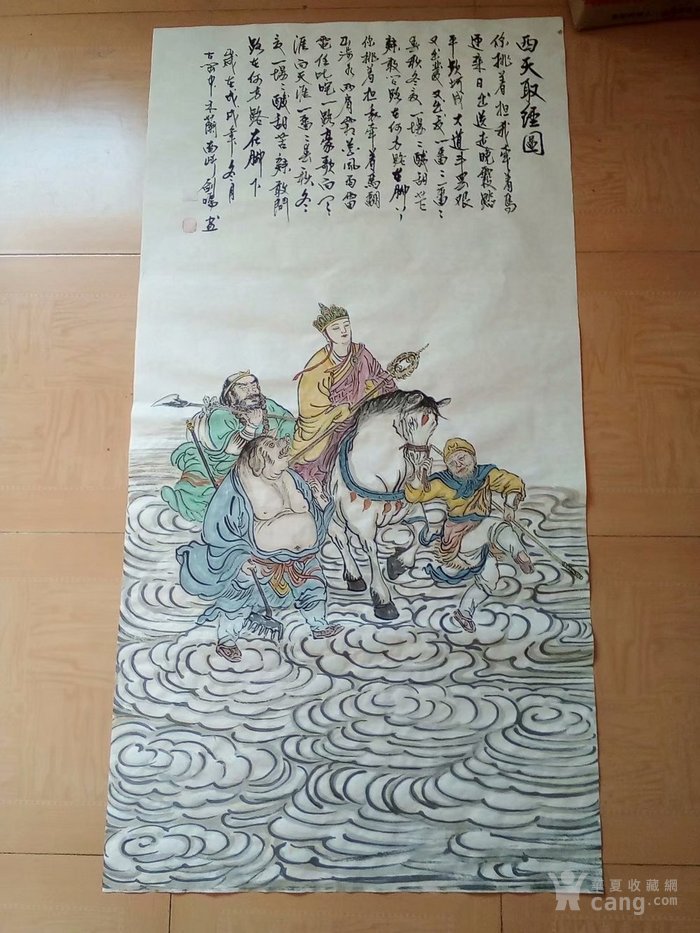 西天取經圖
你挑着担我牵着馬
迎来日出送走晚霞踏
平坎坷成大道斗罢艰
又出發又出發一番二一番二
春秋冬夏一場二酸甜苦
辣敢问路在何方路在脚下
你挑着担我牵着馬翻
山涉水两肩霜花风雨雷
電任叱咤一路豪歌向天
涯向天涯一番二春秋冬
夏一場二酸甜苦辣敢問
路在何方路在脚下
歲在戊戌年冬月
木蘭画师劍鳴画
華夏收藏網
cang.com